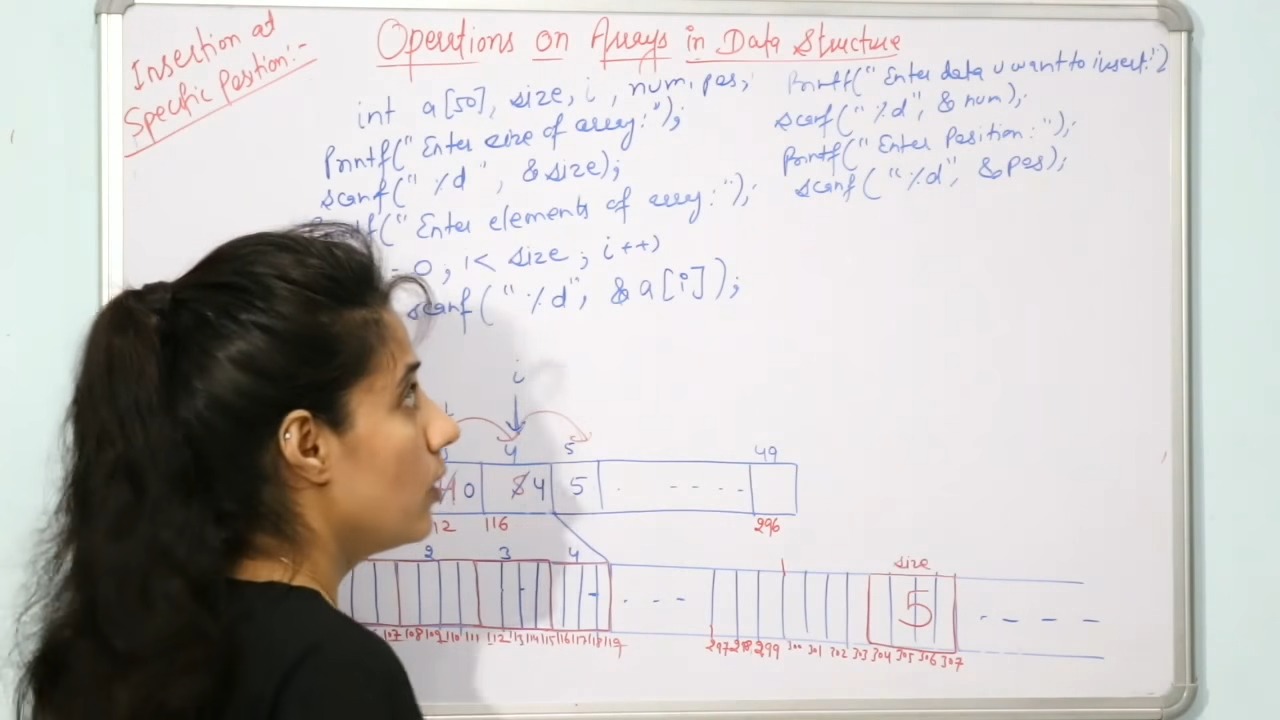 Insertion at
Specific Position:-
Operations on Arrays in Data Structure
int a[50], size, i , num, pos;
Printf("Enter size of array:");
scanf(" %d ", &size);
("Enter elements of array:");
0 ; i< size ; i++)
scanf(" %d", &a[i]);
Printf(" Enter data u want to insert:")
scanf(" %d", & num);
Printf(" Enter Position:");
scanf( " %d", &pos);
i
4 5 49
0 8 4 5 . - - - -
12 116 296
2 3 4 size
. - - - 5 - - - -
107 108 109 110 111 112 113 114 115 116 117 118 119 297 298 299 300 301 302 303 304 305 306 307